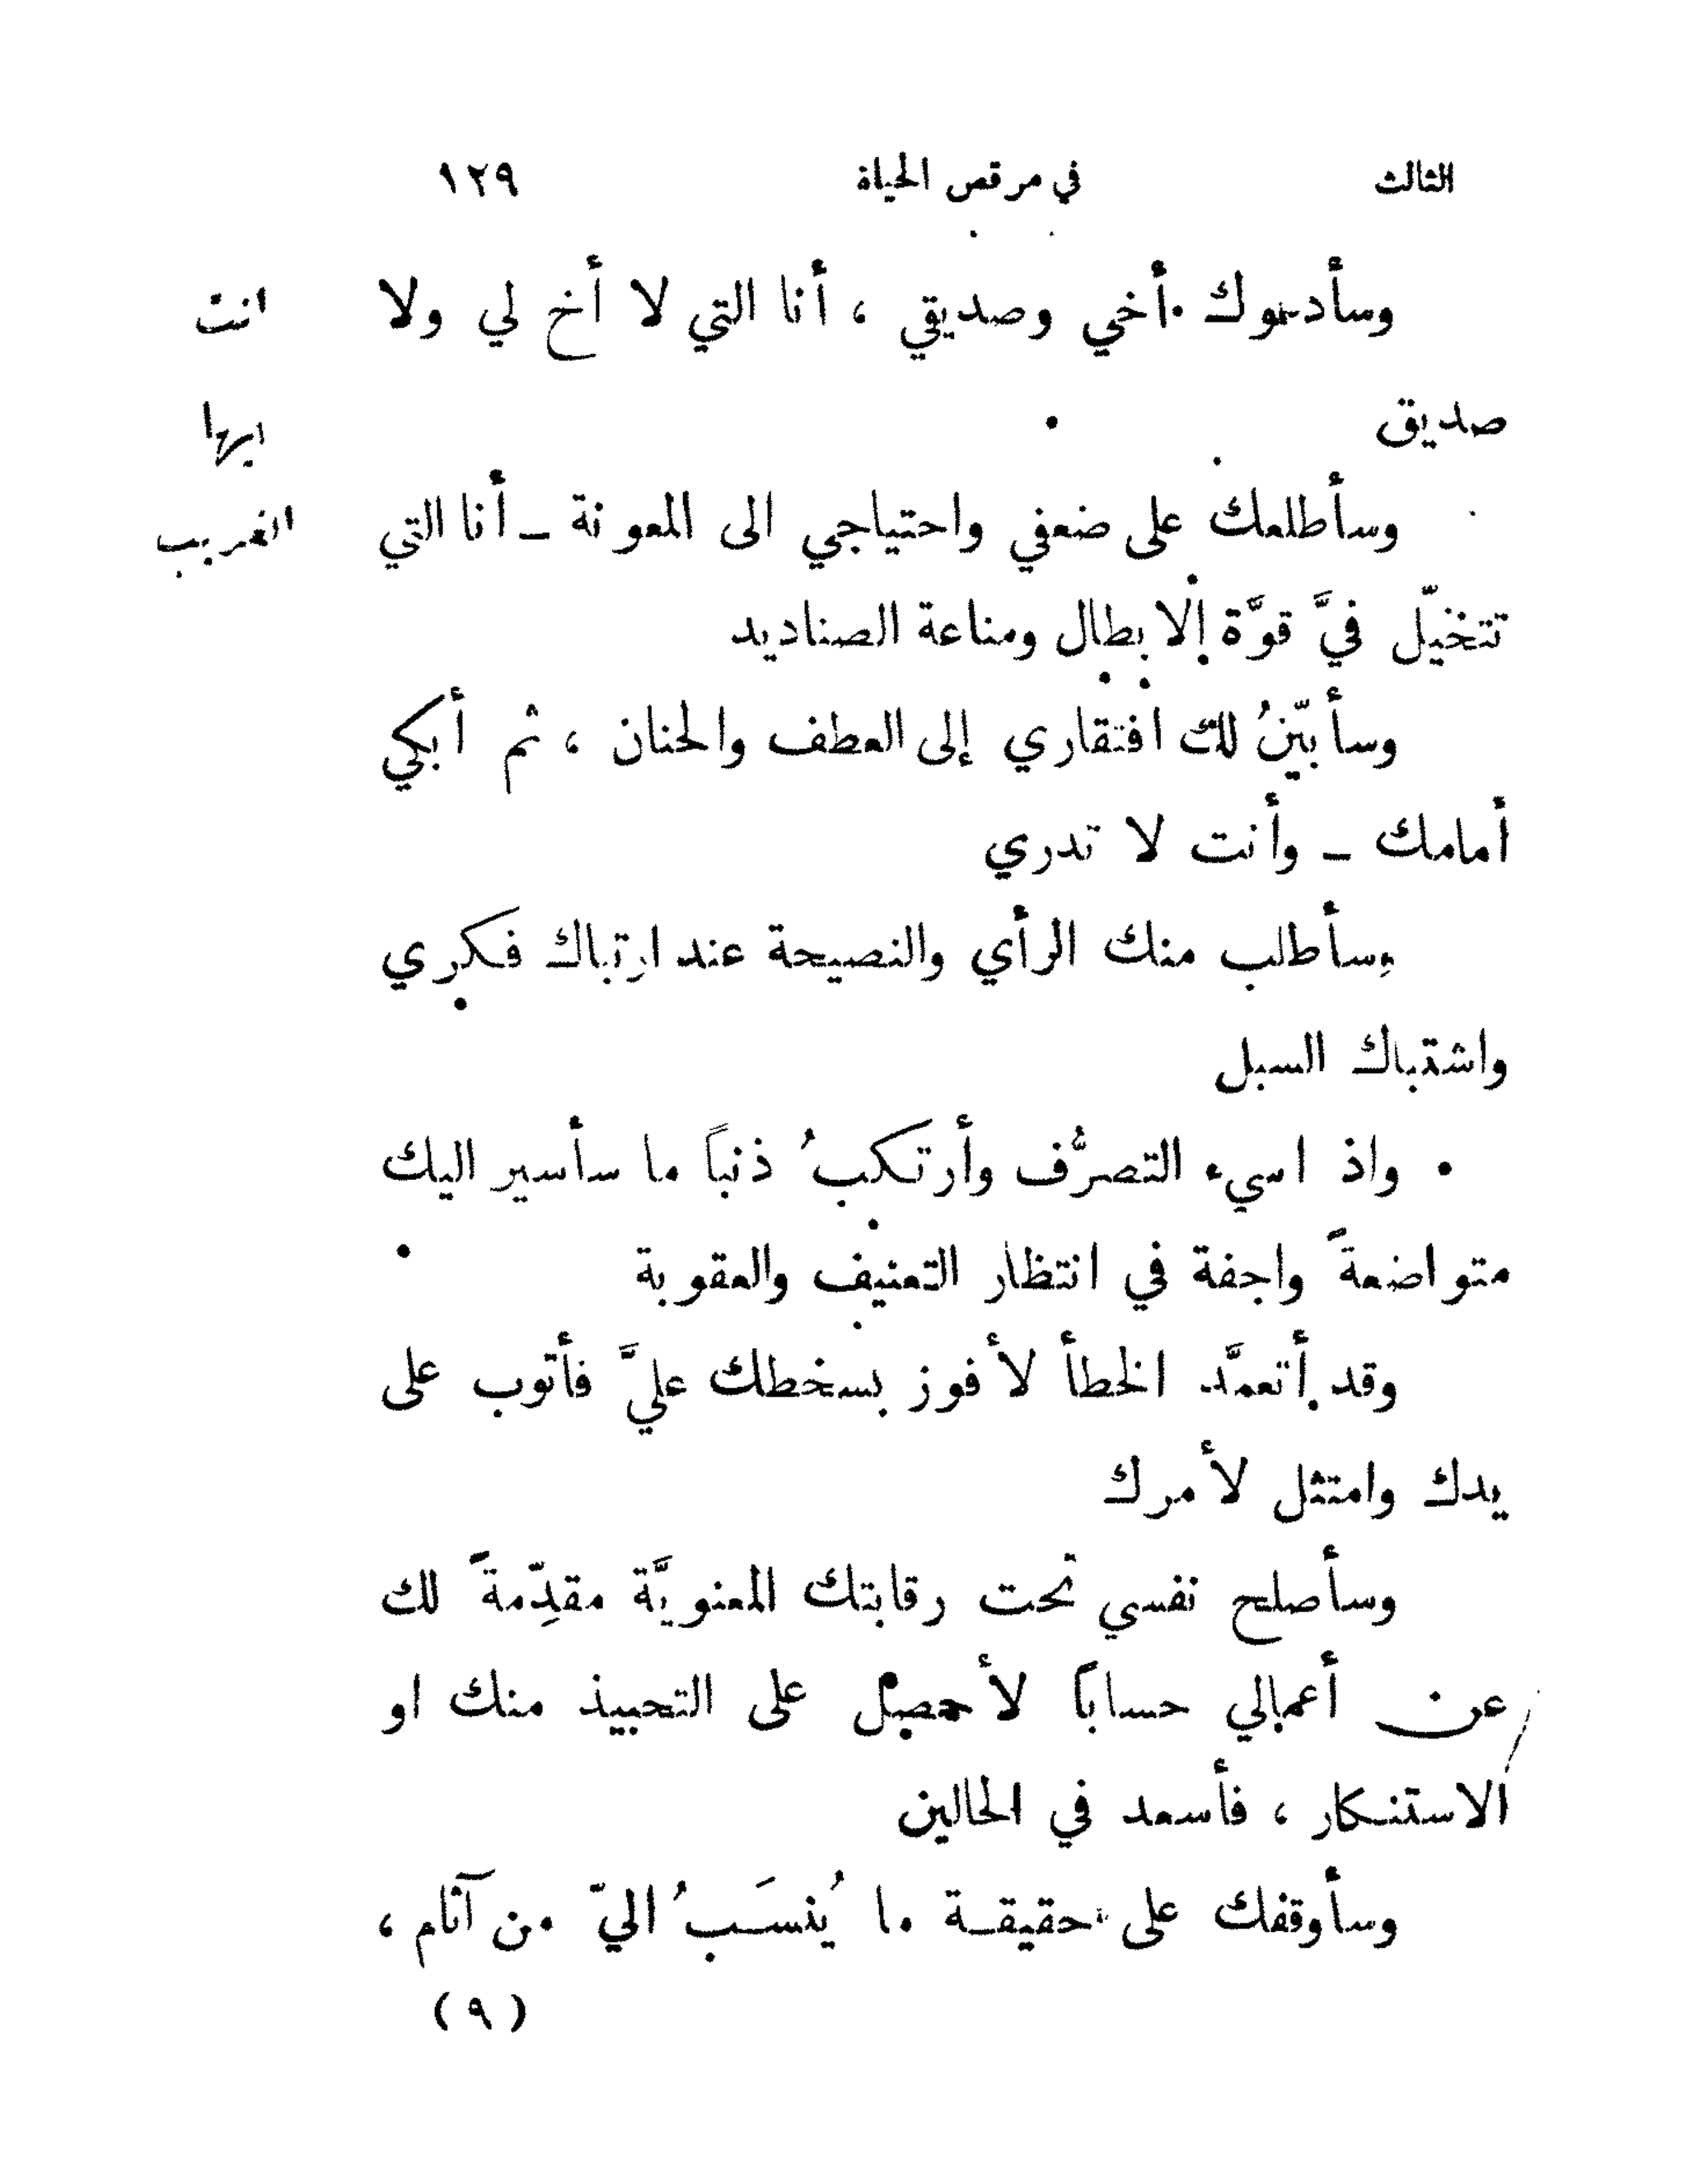 الثالث في مرقص الحياة ١٢٩
وسأدعوك أخي وصديقي ، أنا التي لا أخ لي ولا
صديق
وسأطلعك على ضعفي واحتياجي الى المعونة – أنا التي
تتخيّل فيَّ قوَّة الابطال ومناعة الصناديد
وسأبيّنُ لك افتقاري إلى العطف والحنان ، ثم أبكي
أمامك – وأنت لا تدري
وسأطلب منك الرأي والنصيحة عند ارتباك فكري
واشتباك السبل
واذ اسيء التصرُّف وأرتكبُ ذنباً ما سأسير اليك
متواضعةً واجفة في انتظار التعنيف والعقوبة
وقد أتعمَّد الخطأ لأفوز بسخطك عليَّ فأتوب على
يدك وامتثل لأمرك
وسأصلح نفسي تحت رقابتك المعنويَّة مقدِّمةً لك
عن أعمالي حساباً لأحصل على التحبيذ منك او
الاستنكار ، فأسعد في الحالين
وسأوقفك على حقيقة ما يُنسَبُ اليّ من آثام ،
(٩)
انت
ايها
الغريب